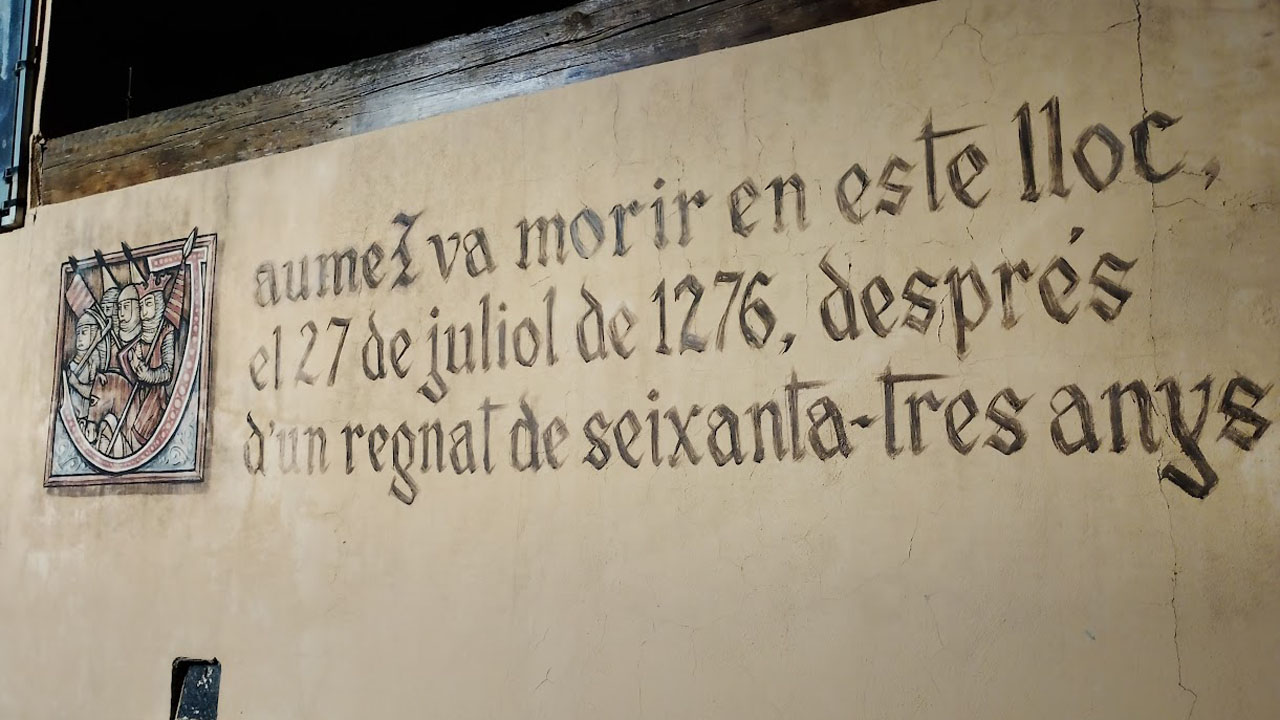 Jaume I va morir en este lloc,
el 27 de juliol de 1276, després
d'un regnat de seixanta-tres anys